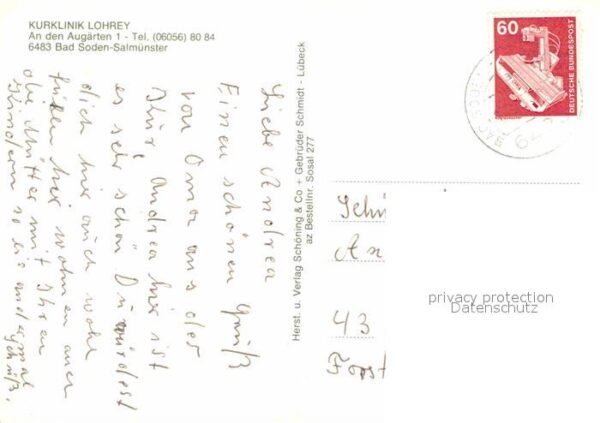 KURKLINIK LOHREY
An den Augärten 1 - Tel. (06056) 80 84
6483 Bad Soden-Salmünster
Liebe Andrea
Einen schönen Gruß
von Oma aus der
Kur Andrea hier ist
es sehr schön Du würdest
dich hier auch wohl
finden hier wohnen auch
die Mütter mit Ihren
Kindern so bis
Herst. u. Verlag Schöning & Co + Gebrüder Schmidt - Lübeck
az Bestellnr. Sosal 277
60
DEUTSCHE BUNDESPOST
An
43
Forst
privacy protection
Datenschutz